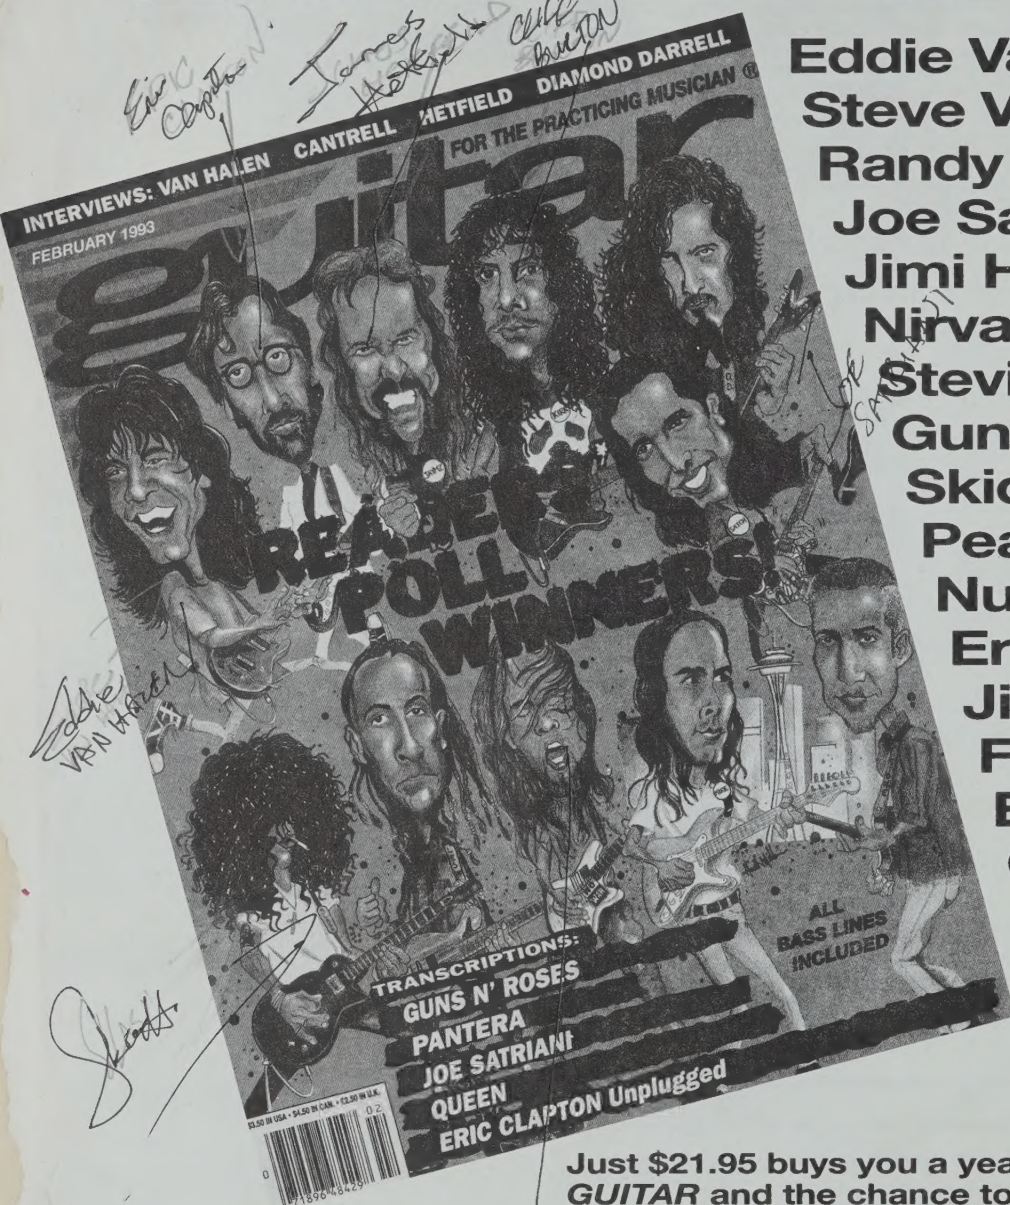 Eric
Clapton
James
Hetfield
CLIFF
BURTON
INTERVIEWS: VAN HALEN CANTRELL HETFIELD DIAMOND DARRELL
FOR THE PRACTICING MUSICIAN ®
guitar
FEBRUARY 1993
JOE
SATRIANI
KIRK
READERS
POLL
WINNERS!
Eddie
VAN HALEN
ALL
BASS LINES
INCLUDED
TRANSCRIPTIONS:
GUNS N' ROSES
PANTERA
JOE SATRIANI
QUEEN
ERIC CLAPTON Unplugged
$3.50 IN USA • $4.50 IN CAN. • £2.50 IN U.K.
02
0 71896 48429
Eddie Va
Steve V
Randy
Joe Sa
Jimi H
Nirva
Stevi
Gun
Skid
Pea
Nu
Er
Ji
F
Just $21.95 buys you a yea
GUITAR and the chance to